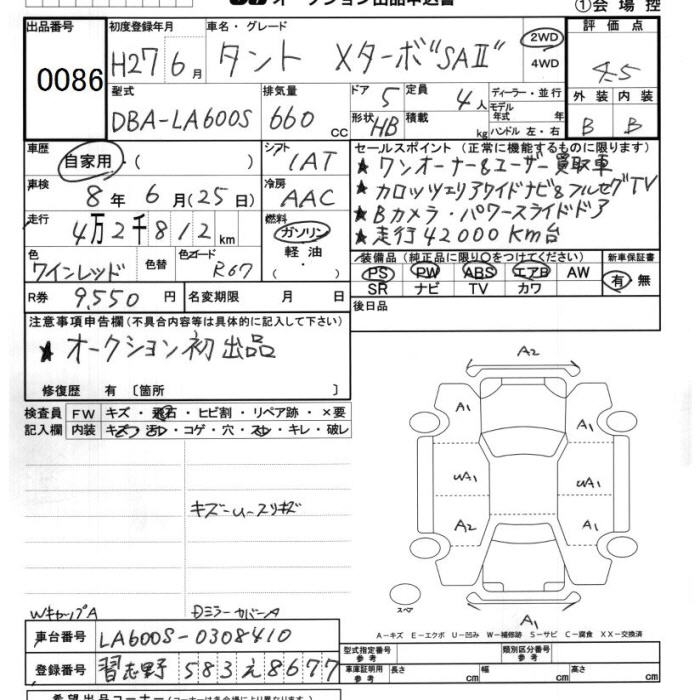 オークション出品申込書
①会場控
出品番号 0086
初度登録年月 H27 6月
車名・グレード タント Xターボ"SAⅡ"
2WD
4WD
評価点 4.5
型式 DBA-LA600S
排気量 660 cc
ドア 5
定員 4人
形状 HB
積載 kg
ディーラー・並行
モデル年式 年
ハンドル 左・右
外装 B
内装 B
車歴 自家用・( )
シフト IAT
車検 8年 6月(25日)
冷房 AAC
走行 4万2千812km
燃料 ガソリン 軽油 ・( )
色 ワインレッド
色替
色コード R67
R券 9,550円
名変期限 月 日
セールスポイント(正常に機能するものに限ります)
★ワンオーナー&ユーザー買取車
★カロッツェリアワイドナビ&フルセグTV
★Bカメラ・パワースライドドア
★走行42000Km台
装備品(純正品に限り○をつけてください)
新車保証書
PS PW ABS エアB AW
SR ナビ TV カワ
有・無
後日品
注意事項申告欄(不具合内容等は具体的に記入して下さい)
★オークション初出品
修復歴 有〔箇所 〕
検査員 FW キズ・飛石・ヒビ割・リペア跡・×要
記入欄 内装 キズ・汚レ・コゲ・穴・スレ・キレ・破レ
キズーU-スリキズ
WキャップA
DミラーカバーA
A2
A1 A1
UA1 UA1
A2 A1
A1
スペア
A-キズ E-エクボ U-凹み W-補修跡 S-サビ C-腐食 XX-交換済
車台番号 LA600S-0308410
登録番号 習志野 583 え 8677
型式指定番号 参考
類別区分番号 参考
車庫証明用 参考 長さ cm 幅 cm 高さ cm
希望出品コーナー